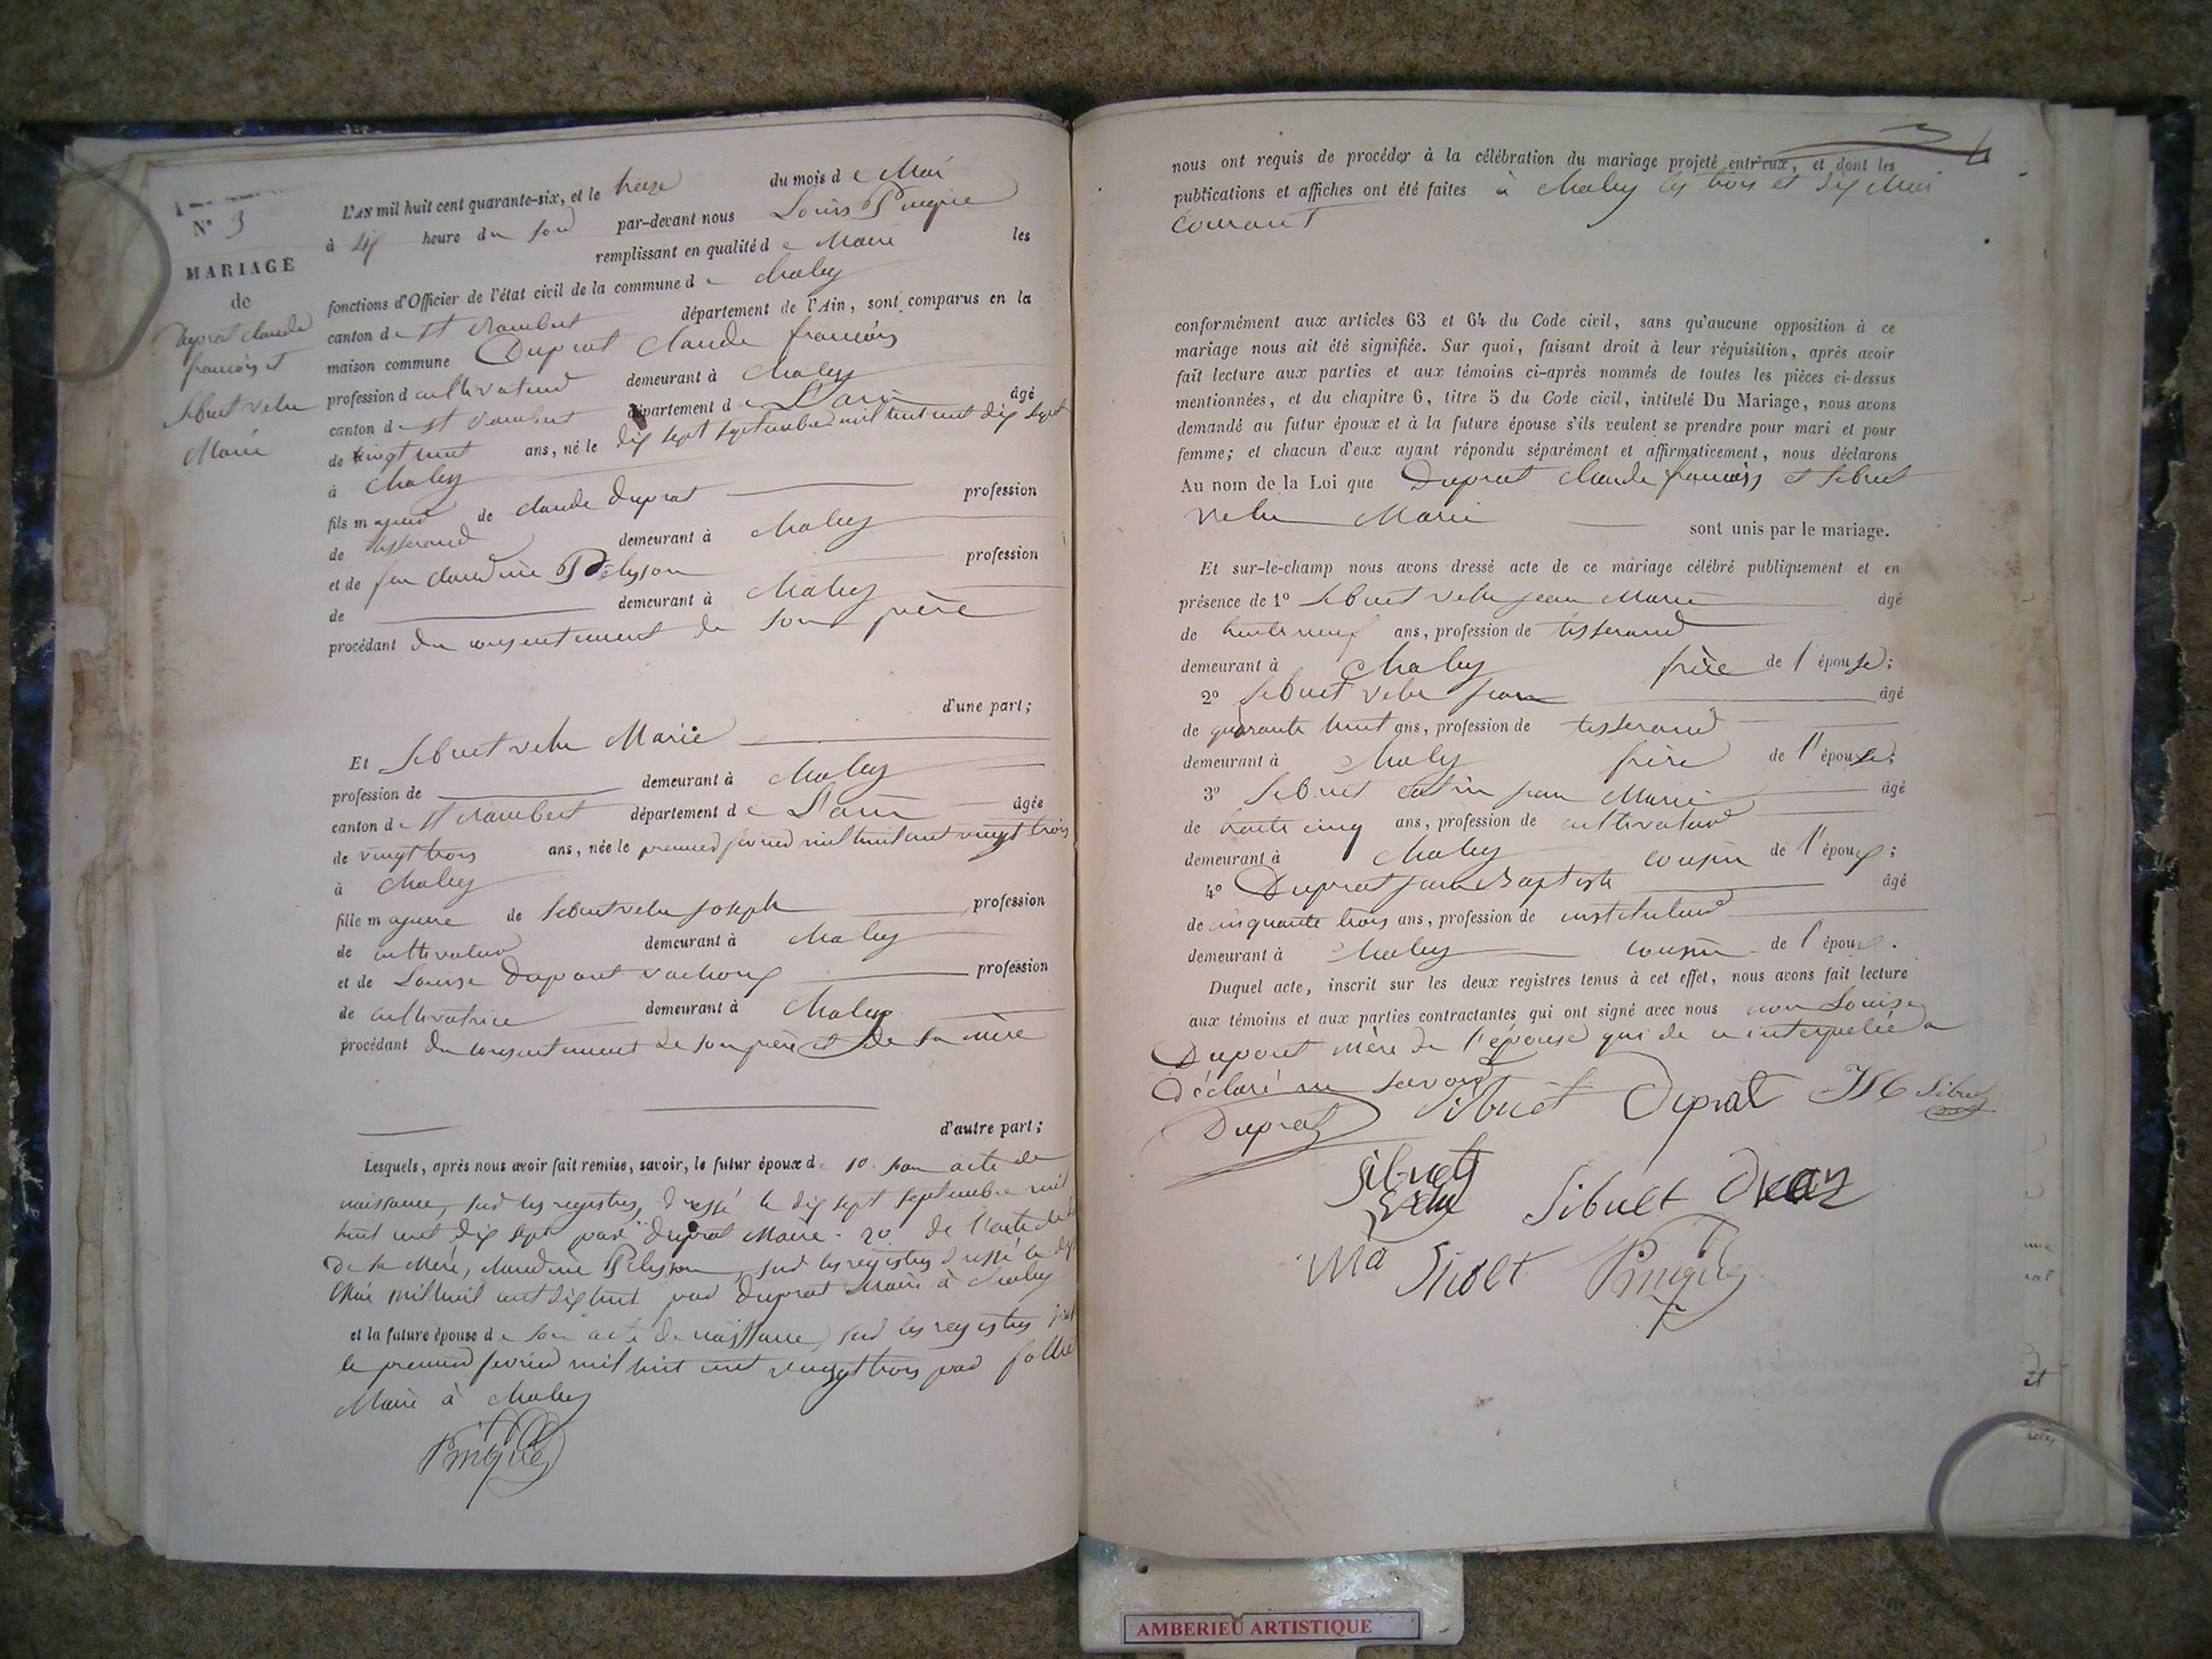 N° 3
MARIAGE
de
Duprat Claude
françois et
Sibuet velu
Marie
L'AN mil huit cent quarante-six, et le treize du mois de Mai
à dix heure du soir par-devant nous Louis
remplissant en qualité de Maire les
fonctions d'Officier de l'état civil de la commune de Chaley
canton de St Rambert département de l'Ain, sont comparus en la
maison commune Duprat Claude françois
profession d cultivateur demeurant à Chaley
canton de St Rambert département de L'ain âgé
de vingt huit ans, né le dix sept septembre mil huit cent dix sept
à Chaley
fils majeur de Claude Duprat profession
de tisserand demeurant à Chaley
et de feu Claudine Pelysson profession
de demeurant à Chaley
procédant du consentement de son père
d'une part;
Et Sibuet velu Marie
profession de demeurant à Chaley
canton de St Rambert département de L'ain âgée
de vingt trois ans, née le premier fevrier mil huit cent vingt trois
à Chaley
fille majeure de Sibuet velu joseph profession
de cultivateur demeurant à Chaley
et de Louise Dupont profession
de cultivatrice demeurant à Chaley
procédant du consentement de son père et de sa mère
d'autre part;
Lesquels, après nous avoir fait remise, savoir, le futur époux de 1o son acte de
naissance, sur les registres, dressé le dix sept septembre mil
huit cent dix sept par Duprat Maire. 2o de l'acte de
de sa Mère, Claudine Pelysson, sur les registres dressé le
Mai mil huit cent dix huit par Duprat Maire à Chaley
et la future épouse de son acte de naissance, sur les registres
le premier fevrier mil huit cent vingt trois par
Maire à Chaley
nous ont requis de procéder à la célébration du mariage projeté entr'eux, et dont les
publications et affiches ont été faites à Chaley les trois et dix Mai
courant
conformément aux articles 63 et 64 du Code civil, sans qu'aucune opposition à ce
mariage nous ait été signifiée. Sur quoi, faisant droit à leur réquisition, après avoir
fait lecture aux parties et aux témoins ci-après nommés de toutes les pièces ci-dessus
mentionnées, et du chapitre 6, titre 5 du Code civil, intitulé Du Mariage, nous avons
demandé au futur époux et à la future épouse s'ils veulent se prendre pour mari et pour
femme; et chacun d'eux ayant répondu séparément et affirmativement, nous déclarons
Au nom de la Loi que Duprat Claude françois et Sibuet
velu Marie sont unis par le mariage.
Et sur-le-champ nous avons dressé acte de ce mariage célébré publiquement et en
présence de 1° Sibuet velu jean Marie âgé
de trente neuf ans, profession de tisserand
demeurant à Chaley frère de l'épouse;
2° Sibuet velu jean âgé
de quarante huit ans, profession de tisserand
demeurant à Chaley frère de l'épouse;
3° Sibuet catin jean Marie âgé
de trente cinq ans, profession de cultivateur
demeurant à Chaley cousin de l'époux;
4° Duprat jean Baptiste âgé
de cinquante trois ans, profession de instituteur
demeurant à Chaley cousin de l'époux.
Duquel acte, inscrit sur les deux registres tenus à cet effet, nous avons fait lecture
aux témoins et aux parties contractantes qui ont signé avec nous non Louise
Dupont mère de l'épouse qui de ce interpellée a
déclaré ne savoir
Duprat Sibuet Duprat Sibuet
Sibuet
velu Sibuet
AMBERIEU ARTISTIQUE